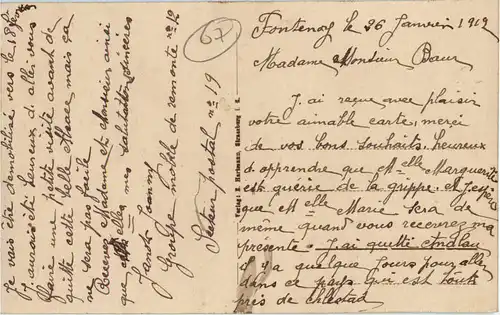 Fontenoy le 26 Janvier 1919
Madame Monsieur Baur
J'ai reçue avec plaisir
votre aimable carte, merci
de vos bons souhaits, heureux
d'apprendre que Melle Marguerite
est guérie de la grippe et J'espère
que Melle Marie sera de
même quand vous recevrez ma
présente. J'ai quitté
il y a quelque Jours pour aller
dans ce pays qui est tout
près de Chlestad
Je vais être démobilisé vers le 18 février
J'aurais été heureux d'aller vous
faire une petite visite avant de
quitté cette belle Alsace mais ça
ne sera pas facile
Recevez Madame et Monsieur ainsi
que mes salutations sincères
Janot
Groupe mobile de remonte n° 12
Secteur postal n° 19
67
Verlag: E. Hartmann, Strassburg i. E.